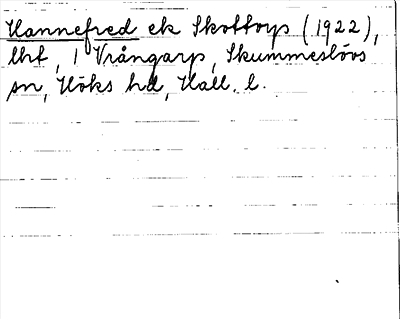 Hannefred ek Skottorps (1922),
lht, 1 Vrångarp, Skummeslövs
sn, Höks hd, Hall. l.